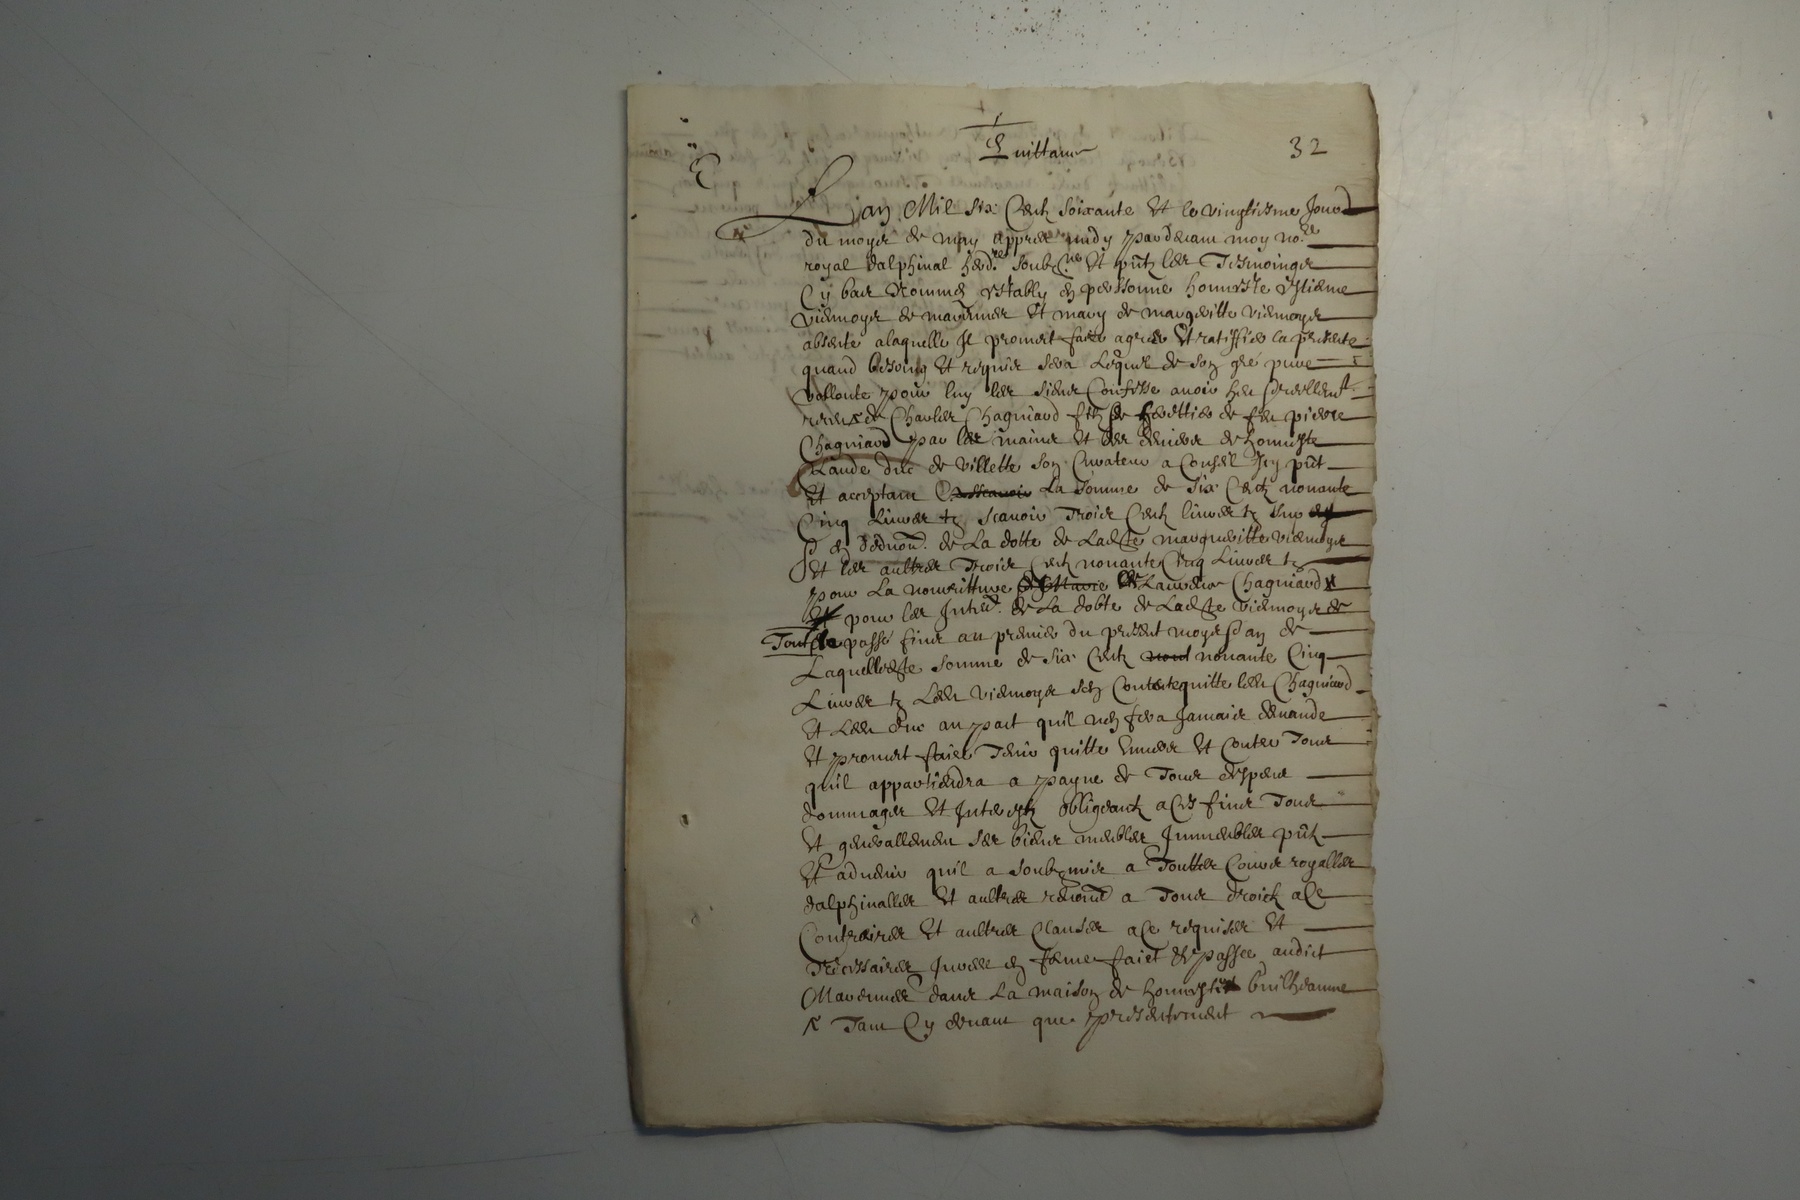 Quittance
32
Lan Mil Six Centz Soixante Et le vingtiesme Jour
du moys de may appres midy pardevant moy no.re
royal dalphinal hered.re soubz.ne Et pntz les Tesmoings
Cy bas nommes Estably en personne honneste
Viemoys de mavennes Et mary de margueritte viemoys
absente alaquelle Il promect faire agreer Et ratiffier la presente
quand besoing Et requis sera Lequel de son gré pure
vollonte pour luy les siens Confesse avoir heu Et reellem.t
receu de Charles Chagniard filz Et herettier de feu pierre
Chagniard par les mains Et des deniers de honneste
Claude duc de villette son Curateur a Conseil Icy pnt
Et acceptant La somme de six Centz nonante
Cinq Livres tz scavoir Trois Centz livres tz
en deduon. de La dotte de Ladte margueritte viemoys
Et les aultres Trois Centz nonante Cinq Livres tz
pour La nourritture Chagniard
Et pour les Interz. de La dotte de Ladte viemoys de
Tout le passé finir au premier du present moys dan de
Laquelledte somme de six Centz nonante Cinq
Livres tz Led viemoys sen Contente quitte led Chagniard
Et Led duc au pact quil nen fera Jamais demande
Et promect faire Tenir quitte Envers Et Contre Tous
quil appartiendra a payne de Tous despens
dommages Et Interestz obligeantz aCes fins Tous
Et generallement ses biens meubles Immeubles pntz
Et advenir quil a soubzmis a Touttes Cours royalles
dalphinalles Et aultres renoncé a Tous droictz aCe
Contraires Et aultres Clauses aCe requises Et
necessaires Juree en forme faict Et passee audict
Mavennes dans La maison de honneste Guilheaume
Tant Cy devant que presentement